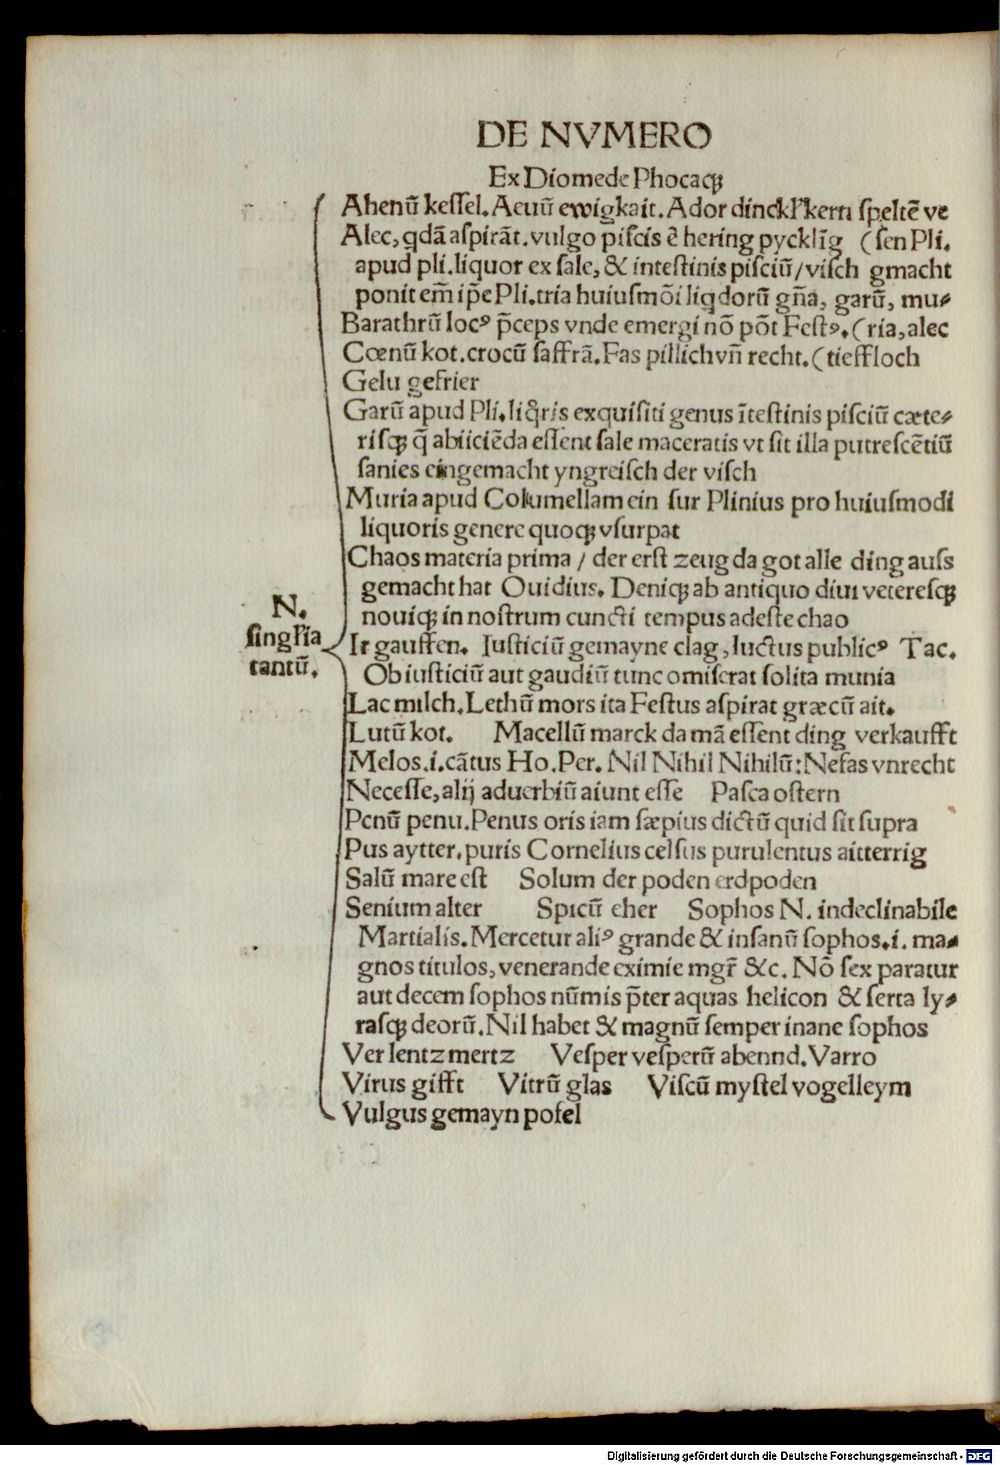 DE NVMERO
Ex Diomede Phocaq꜑
Ahenū keſſel. Aeuū ewigkait. Ador dinckl'kern ſpeltē ve
Alec, qdā aſpirāt. vulgo piſcis ē hering pycklīg (ſen Pli.
apud pli. liquor ex ſale, & inteſtinis piſciū/viſch gmacht
ponit em̄ ip̄e Pli. tria huiuſmōi liqdorū gn̄a, garū, mu⸗
Barathrū locꝰ p̄ceps vnde emergi nō pōt Feſtꝰ. (ria, alec
Cœnū kot. crocū ſaffrā. Fas pillich vn̄ recht. (tieffloch
Gelu gefrier
Garū apud Pli. liqr̄is exquiſiti genus īteſtinis piſciū cæte⸗
riſqꝫ q̄ abiiciēda eſſent ſale maceratis vt ſit illa putreſcētiū
ſanies eingemacht yngreiſch der viſch
Muria apud Columellam ein ſur Plinius pro huiuſmodi
liquoris genere quoqꝫ vſurpat
Chaos materia prima / der erſt zeug da got alle ding auſs
gemacht hat Ouidius. Deniqꝫ ab antiquo diui vetereſqꝫ
nouiqꝫ in noſtrum cuncti tempus adeſte chao
N.
ſingl'ia
tantū.
Ir gauffen. Iuſticiū gemayne clag, luctus publicꝰ Tac.
Ob iuſticiū aut gaudiū tunc omiſerat ſolita munia
Lac milch. Lethū mors ita Feſtus aſpirat græcū ait.
Lutū kot. Macellū marck da mā eſſent ding verkaufft
Melos .i. cātus Ho. Per. Nil Nihil Nihilū: Nefas vnrecht
Neceſſe, alij aduerbiū aiunt eſſe Paſca oſtern
Penū penu. Penus oris iam ſæpius dictū quid ſit ſupra
Pus aytter. puris Cornelius celſus purulentus aitterrig
Salū mare eſt Solum der poden erdpoden
Senium alter Spicū eher Sophos N. indeclinabile
Martialis. Mercetur aliꝰ grande & inſanū ſophos .i. ma⸗
gnos titulos, venerande eximie mgr̄ &c. Nō ſex paratur
aut decem ſophos nūmis p̄ter aquas helicon & ſerta ly⸗
raſqꝫ deorū. Nil habet & magnū ſemper inane ſophos
Ver lentz mertz Veſper veſperū abennd. Varro
Virus gifft Vitrū glas Viſcū myſtel vogelleym
Vulgus gemayn pofel
Digitalisierung gefördert durch die Deutsche Forschungsgemeinschaft - DFG